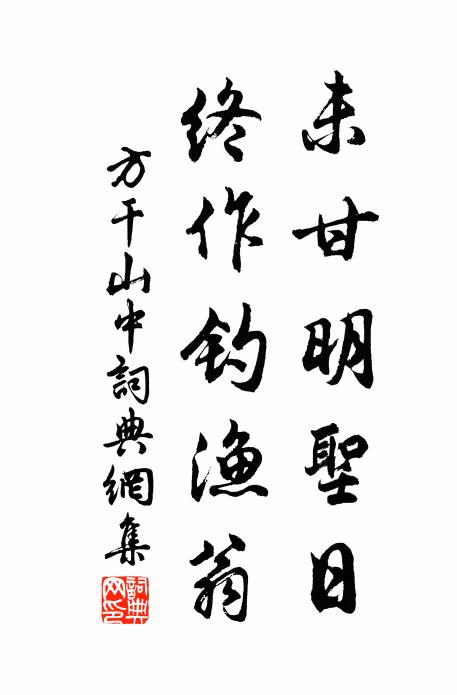 未甘明聖日
終作釣漁翁
方干山中詞典網集
詞典網印